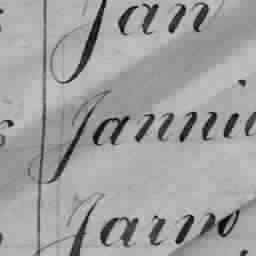 Jan
Janni
Jarno